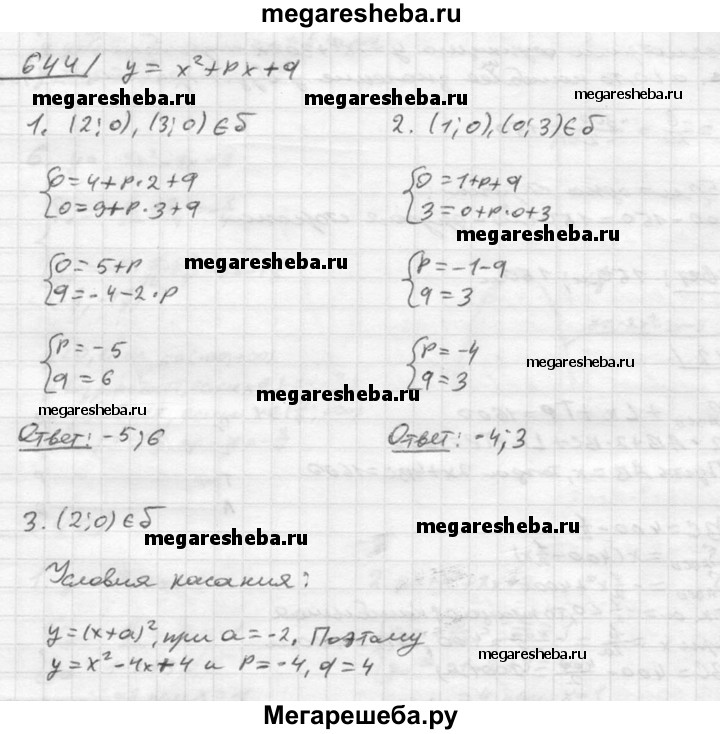 megaresheba.ru
644/ y = x²+px+q
megaresheba.ru megaresheba.ru megaresheba.ru
1. (2;0), (3;0) ∈ б
{0=4+p·2+q
{0=9+p·3+q
{0=5+p
{q=-4-2·p
megaresheba.ru
{p=-5
{q=6
megaresheba.ru
Ответ: -5;6
2. (1;0), (0;3) ∈ б
{0=1+p+q
{3=0+p·0+3
megaresheba.ru
{p=-1-q
{q=3
{p=-4
{q=3
megaresheba.ru
megaresheba.ru
Ответ: -4;3
3. (2;0) ∈ б
megaresheba.ru megaresheba.ru
Условия касания:
y=(x+a)², при a=-2. Поэтому
y=x²-4x+4 и p=-4, q=4
megaresheba.ru
Мегарешеба.ру